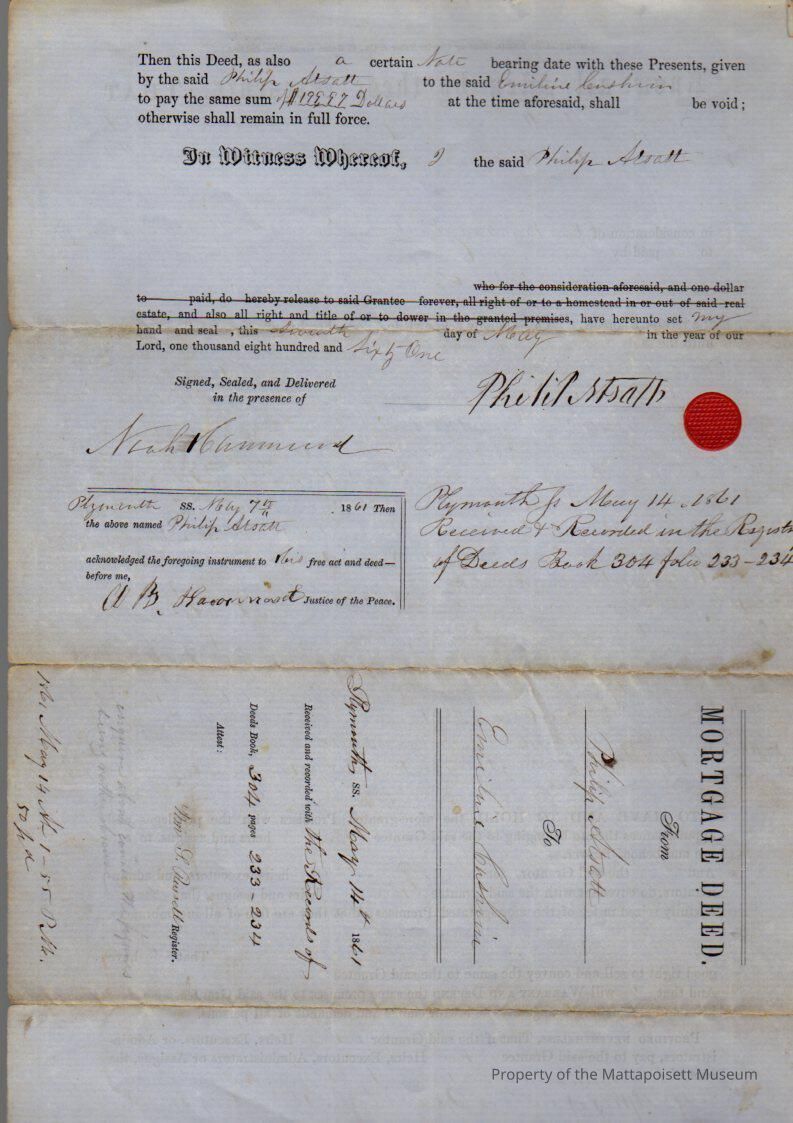 Then this Deed, as also a certain Note bearing date with these Presents, given
by the said Philip Atsatt to the said Emiline Cushin
to pay the same sum of Dollars at the time aforesaid, shall be void;
otherwise shall remain in full force.
In Witness Whereof, I the said Philip Atsatt
who for the consideration aforesaid, and one dollar
to paid, do hereby release to said Grantee forever, all right of or to a homestead in or out of said real
estate, and also all right and title of or to dower in the granted premises, have hereunto set my
hand and seal , this Seventh day of May in the year of our
Lord, one thousand eight hundred and Sixty One
Signed, Sealed, and Delivered
in the presence of
Philip Atsatt
Noah Hammond
Plymouth SS. May 7th 1861 Then
the above named Philip Atsatt
acknowledged the foregoing instrument to his free act and deed—
before me,
A B. Hammond Justice of the Peace.
Plymouth ss May 14, 1861
Received & Recorded in the Registr
of Deeds Book 304 folio 233-234
MORTGAGE DEED.
From
Philip Atsatt
To
Emiline Cushin
Plymouth, SS. May 14th 1861
Received and recorded with the Records of
Deeds Book, 304 pages 233-234
Attest:
Wm. S. Russell Register.
1861 May 14 At 1-55 P.M.
50 pd
Property of the Mattapoisett Museum